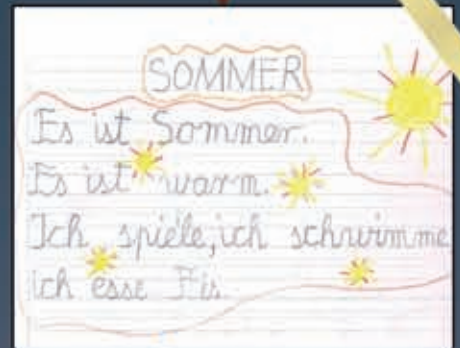 SOMMER
Es ist Sommer.
Es ist warm.
Ich spiele, ich schwimme
ich esse Eis.